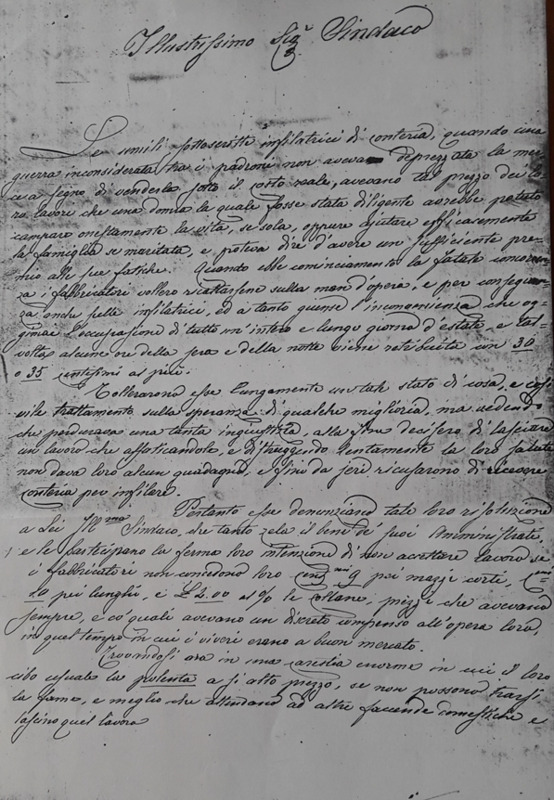 Illustrissimo Sigr Sindaco
Le umili sottoscritte infilatrici di conteria, quando una
guerra inconsiderata tra i padroni non aveva deprezzata la mer
ce a segno di venderla sotto il costo reale, avevano tal prezzo dei lo
ro lavori che una donna la quale fosse stata diligente avrebbe potuto
campare onestamente la vita, se sola, oppure ajutare efficacemente
la famiglia se maritata, e poteva dire d'avere un sufficiente pre-
mio alle sue fatiche. Quando ebbe cominciamento la fatale concorren
za i fabbricatori vollero ricattarsene sulla man d'opera, e per conseguen
za anche sulle infilatrici, ed a tanto giunse l'inconvenienza che og
gimai l'occupazione di tutto un'intero e lungo giorno d'estate e tal
volta alcune ore della sera e della notte viene retribuita con 30
o 35 centesimi al più.
Tollerarono esse lungamente un tale stato di cose, e così
vile trattamento sulla speranza di qualche miglioria, ma vedendo
che perdurava una tanta ingiustizia, alla fine decisero di lasciare
un lavoro che affaticandole, e distruggendo lentamente la loro salute
non dava loro alcun guadagno, e fino da jeri ricusarono di ricevere
conteria per infilare.
Pertanto esse denunziano tale loro risoluzione
a Lei Illmo Sindaco, che tanto zela il bene de' suoi Amministrati,
e le partecipano la ferma loro intenzione di non accettare lavoro se
i fabbricatori non concedono loro 9 pei mazzi corti,
10 pei lunghi, e £ 2.00 al % le collane, prezzi che avevano
sempre, e co' quali avevano un discreto compenso all'opera loro,
in quel tempo in cui i viveri erano a buon mercato.
Trovandosi ora in una carestia enorme in cui il loro
cibo usuale la polenta a sì alto prezzo, se non possono trarsi
la fame, è meglio che attendano ad altre faccende domestiche e
lascino quel lavoro